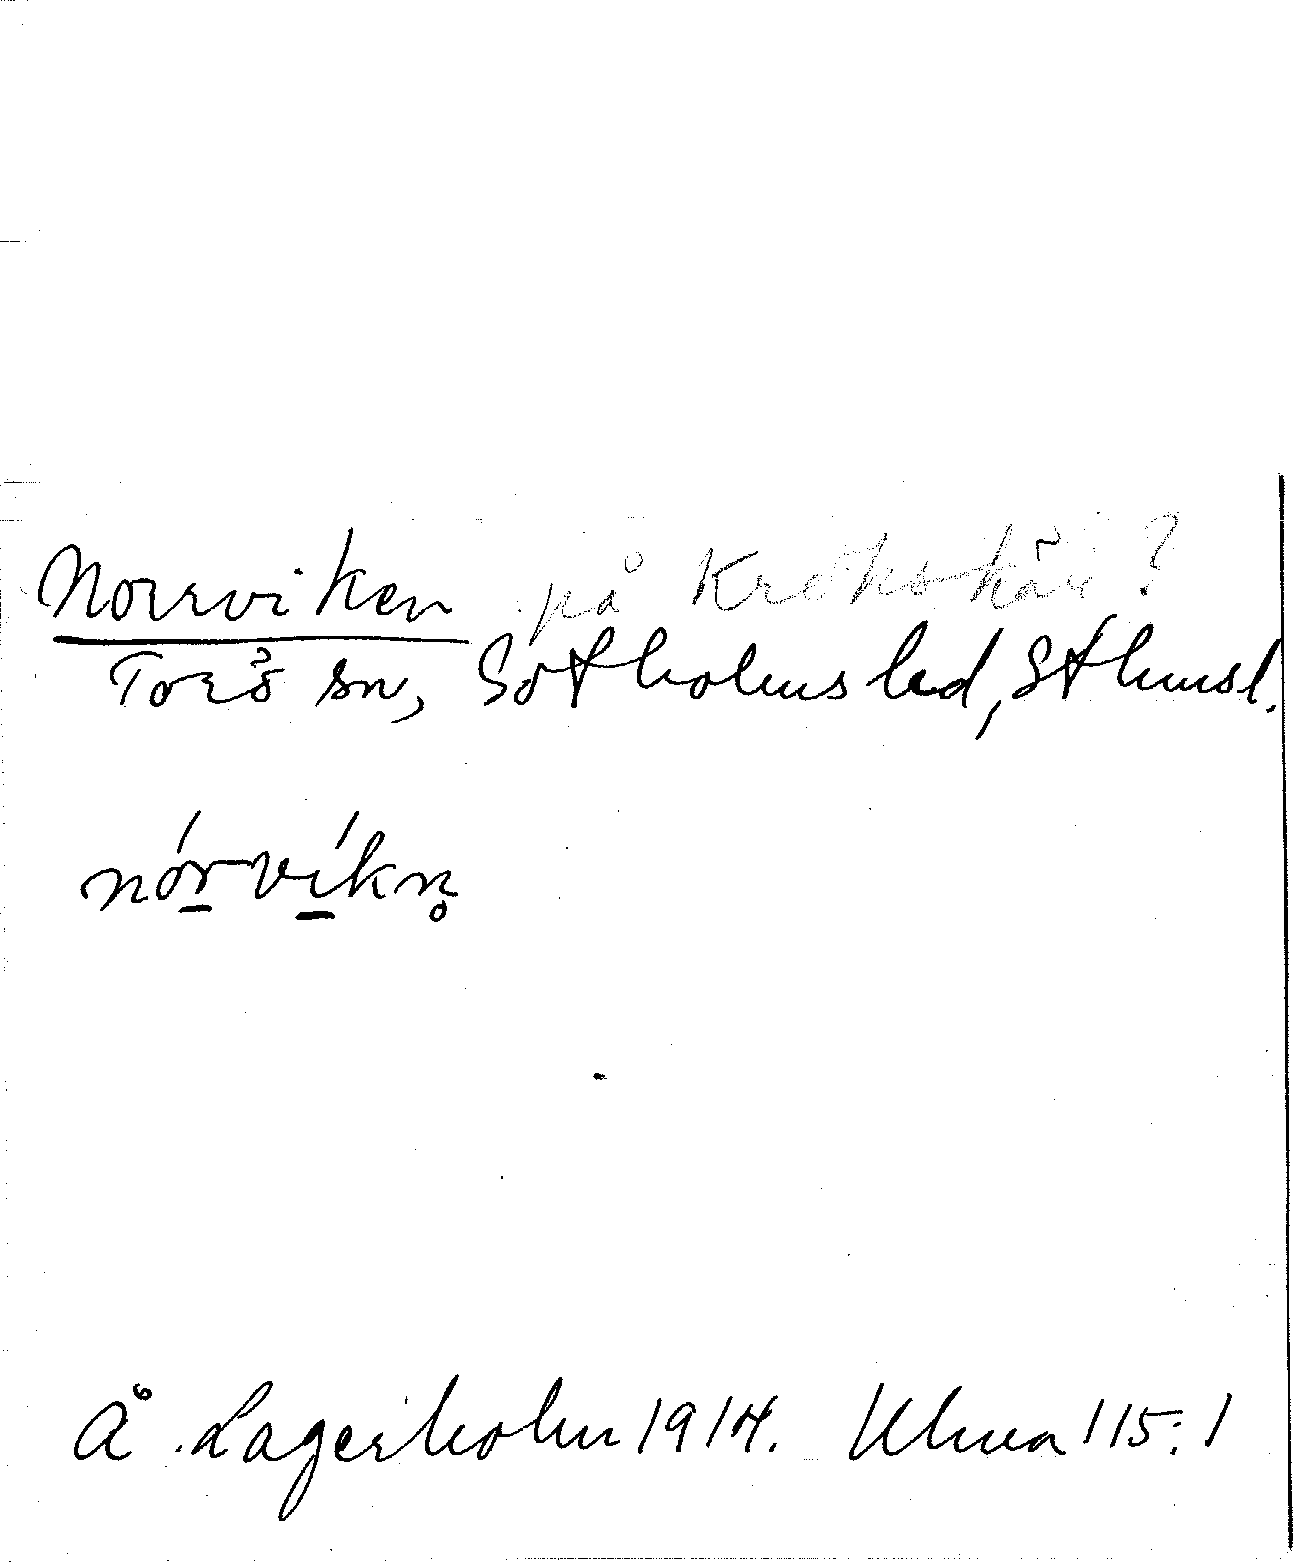 Norrviken på Krokskär?
Torö sn, Sotholms hd, Sthmsl.
nórvíkn̥
Å Lagerholm 1914. Ulma 115:1